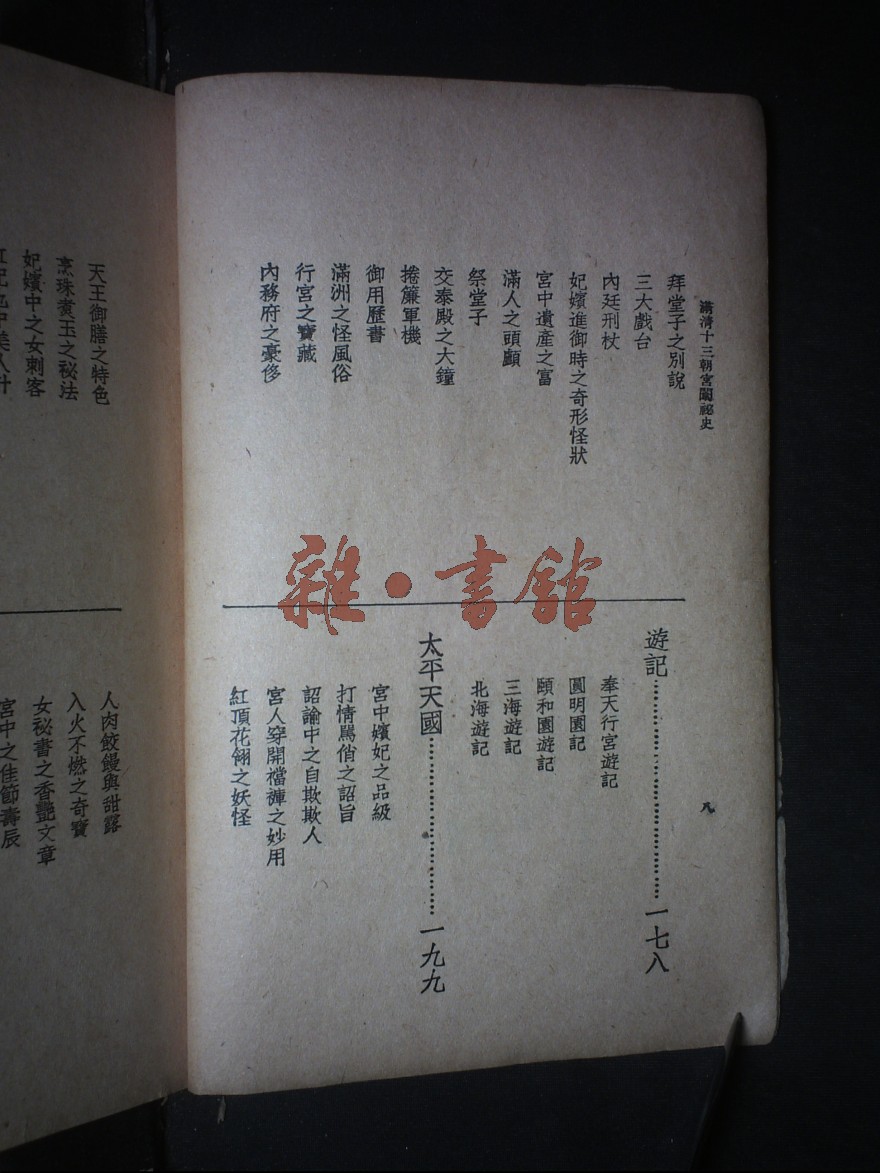 滿清十三朝宮闈祕史
拜堂子之別說
三大戲台
內廷刑杖
妃嬪進御時之奇形怪狀
宮中遺產之富
滿人之頭顱
祭堂子
交泰殿之大鐘
捲簾軍機
御用歷書
滿洲之怪風俗
行宮之寶藏
內務府之豪侈
遊記……一七八
奉天行宮遊記
圓明園記
頤和園遊記
三海遊記
北海遊記
太平天國……一九九
宮中嬪妃之品級
打情罵俏之詔旨
詔諭中之自欺欺人
宮人穿開襠褲之妙用
紅頂花翎之妖怪
八
雜·書館
天王御膳之特色
烹珠煮玉之秘法
妃嬪中之女刺客
人肉餃饅與甜露
入火不燃之奇寶
女秘書之香艷文章
宮中之佳節壽辰